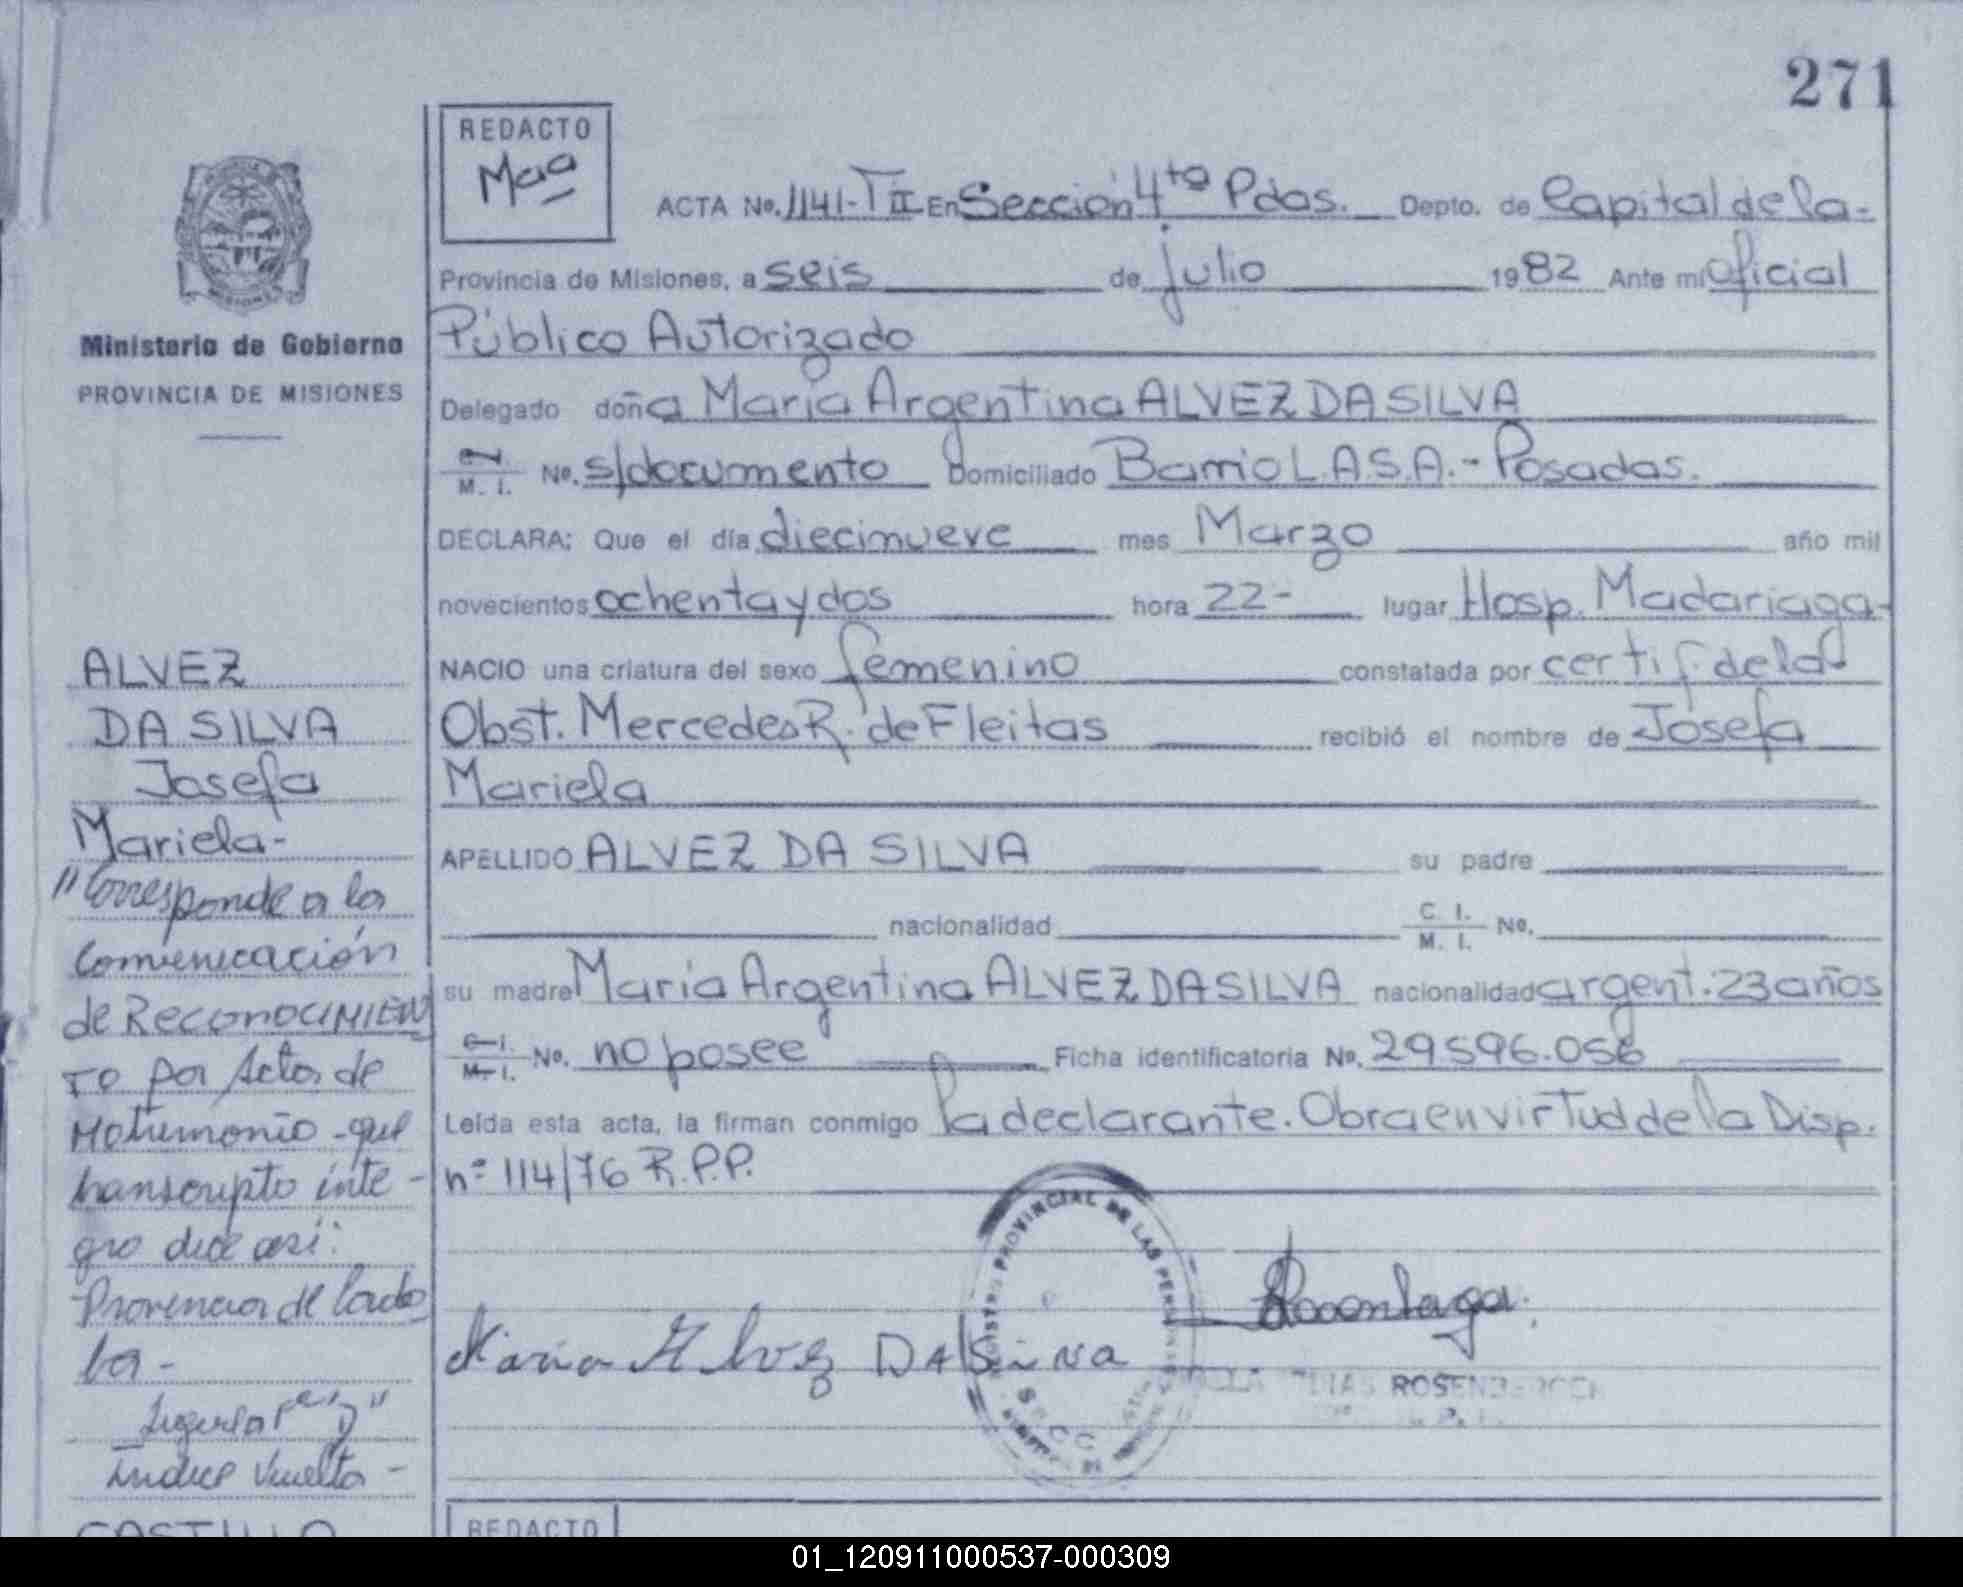 271
REDACTO
Maª
ACTA No. 1141-TII En Sección 4ta Pdas. Depto. de Capital de la-
Provincia de Misiones, a seis de julio 1982 Ante mí Oficial
Público Autorizado
Delegado doña María Argentina ALVEZ DA SILVA
C. I. M. I. No. s/documento Domiciliado Barrio L.A.S.A.- Posadas.
DECLARA: Que el día diecinueve mes Marzo año mil
novecientos ochenta y dos hora 22- lugar Hosp. Madariaga-
NACIO una criatura del sexo femenino constatada por certif. de la
Obst. Mercedes R. de Fleitas recibió el nombre de Josefa
Mariela
APELLIDO ALVEZ DA SILVA su padre
nacionalidad C. I. M. I. No.
su madre María Argentina ALVEZ DA SILVA nacionalidad argent. 23 años
C. I. M. I. No. no posee Ficha identificatoria No. 29596.056
Leída esta acta, la firman conmigo la declarante. Obra en virtud de la Disp.
nº 114/76 R.P.P.
Maria Alvez DA Silva
PROVINCIAL DE LAS PERS
ROSEN
REDACTO
Ministerio de Gobierno
PROVINCIA DE MISIONES
ALVEZ
DA SILVA
Josefa
Mariela-
"Corresponde a la
Comunicación
de RECONOCIMIEN
TO por Acta de
Matrimonio - que
transcripto inte-
gro dice así:
Provincia de Córdo
ba-
Indice Vuelta-
CASTILLO
01_120911000537-000309